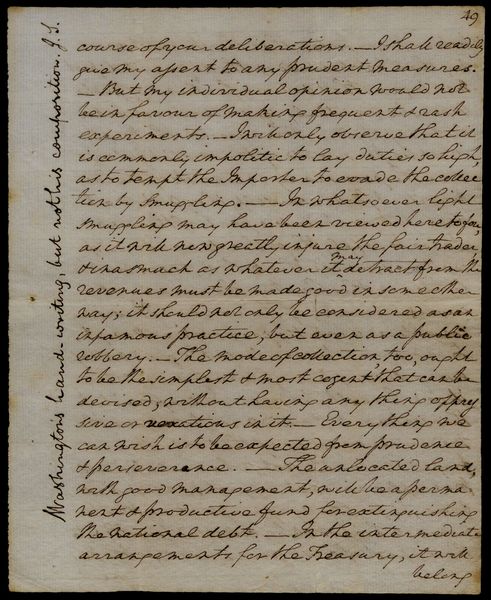 49
course of your deliberations. — I shall readily
give my assent to any prudent measures.
— But my individual opinion would not
be in favour of making frequent & rash
experiments. — I will only observe that it
is commonly impolitic to lay duties so high,
as to tempt the Importer to evade the collec
tion by smuggling. — In whatsoever light
smuggling may have been viewed heretofore,
as it will now greatly injure the fair trader
& in as much as whatever it may detract from the
revenues must be made good in some other
way; it should not only be considered as an
infamous practice, but even as a public
robbery. — The mode of collection, too, ought
to be the simplest & most cogent that can be
devised, without having any thing oppres
sive or vexatious in it. — Everything we
can wish is to be expected from prudence
& perseverance. — The unlocated land,
with good management, will be a perma
nent & productive fund for extinguishing
the national debt. — In the intermediate
arrangements for the Treasury, it will
belong
Washington's hand-writing, but not his composition. J.S.